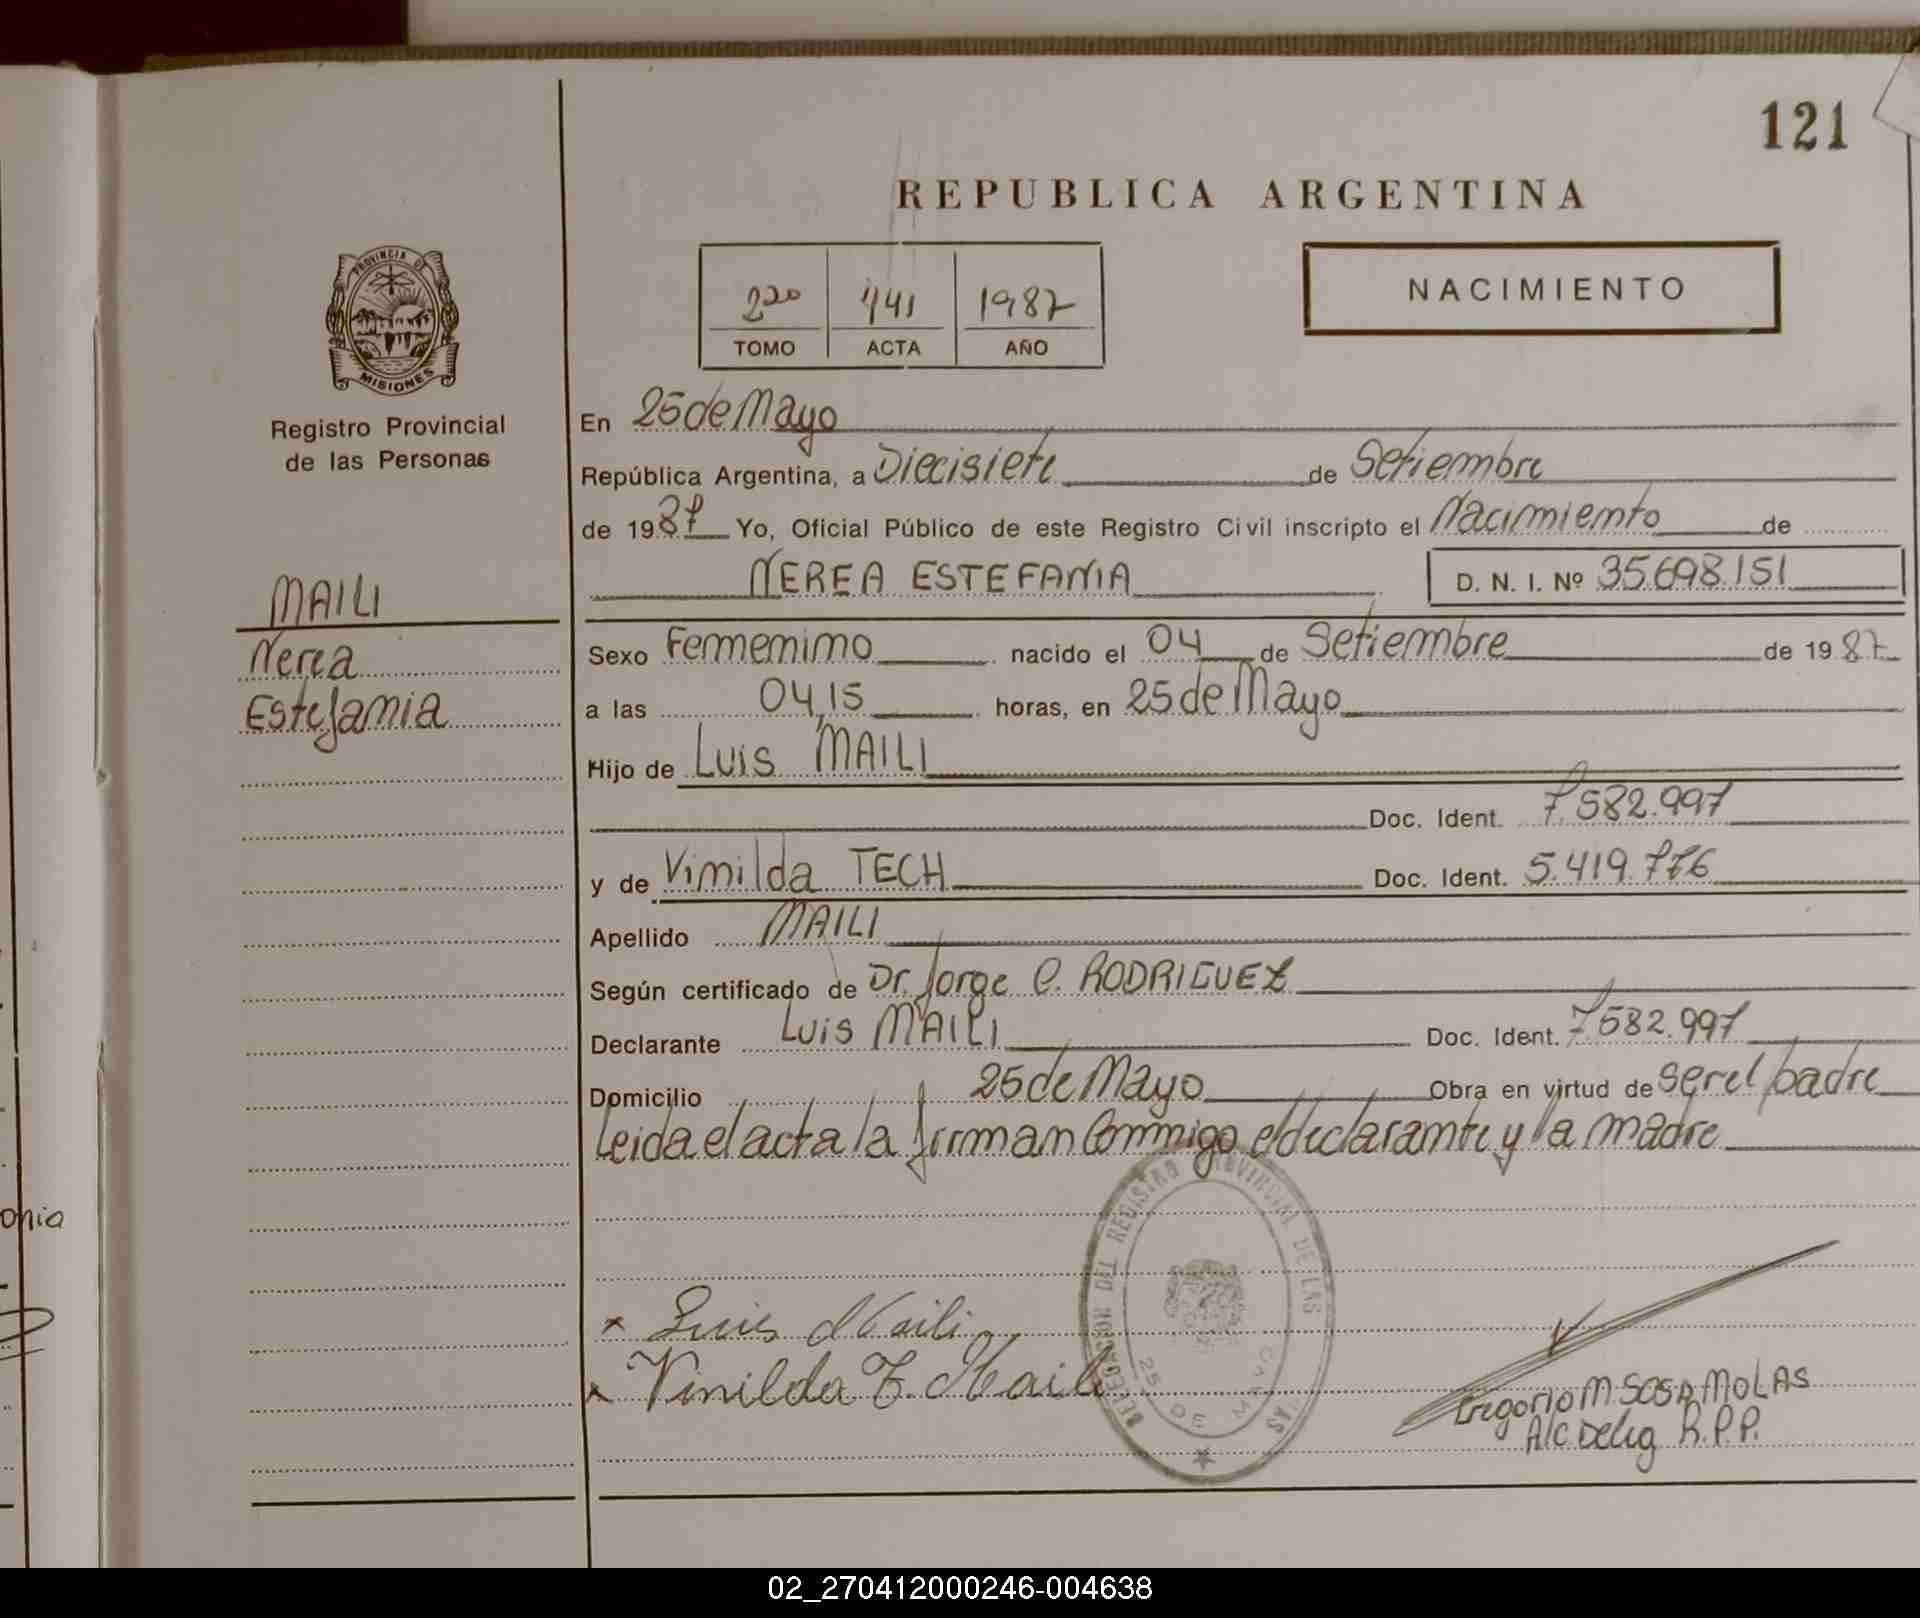 121
REPUBLICA ARGENTINA
PROVINCIA DE
MISIONES
Registro Provincial
de las Personas
220 441 1987
TOMO ACTA AÑO
NACIMIENTO
En 25 de Mayo
República Argentina, a Diecisiete de Setiembre
de 1987 Yo, Oficial Público de este Registro Civil inscripto el Nacimiento de
NEREA ESTEFANIA D. N. I. Nº 35.698.151
MAILI
Nerea
Estefania
Sexo Femmenimo nacido el 04 de Setiembre de 1987
a las 04,15 horas, en 25 de Mayo
Hijo de Luis MAILI
Doc. Ident. 7.582.997
y de Vinilda TECH Doc. Ident. 5.419.776
Apellido MAILI
Según certificado de Dr. Jorge C. RODRIGUEZ
Declarante Luis MAILI Doc. Ident. 7582.997
Domicilio 25 de Mayo Obra en virtud de ser el padre
Leida el acta la firman Conmigo el declarante y la madre
onia
DELEGACION DEL REGISTRO PROVINCIAL DE LAS
25 DE MAYO
x Luis Maili
x Vinilda T. Maili
Gregorio M. SOSA MOLAS
A/C Deleg R.P.P.
02_270412000246-004638